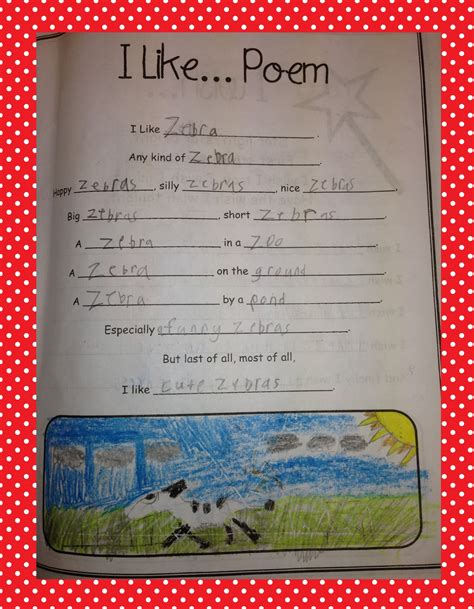 I Like... Poem
I Like Zebra.
Any kind of Zebra.
Happy Zebras, silly Zebras, nice Zebras.
Big Zebras, short Zebras.
A Zebra in a Zoo.
A Zebra on the ground.
A Zebra by a pond.
Especially a funny Zebras.
But last of all, most of all,
I like cute Zebras.